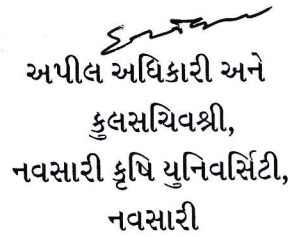 અપીલ અધિકારી અને
કુલસચિવશ્રી,
નવસારી કૃષિ યુનિવર્સિટી,
નવસારી